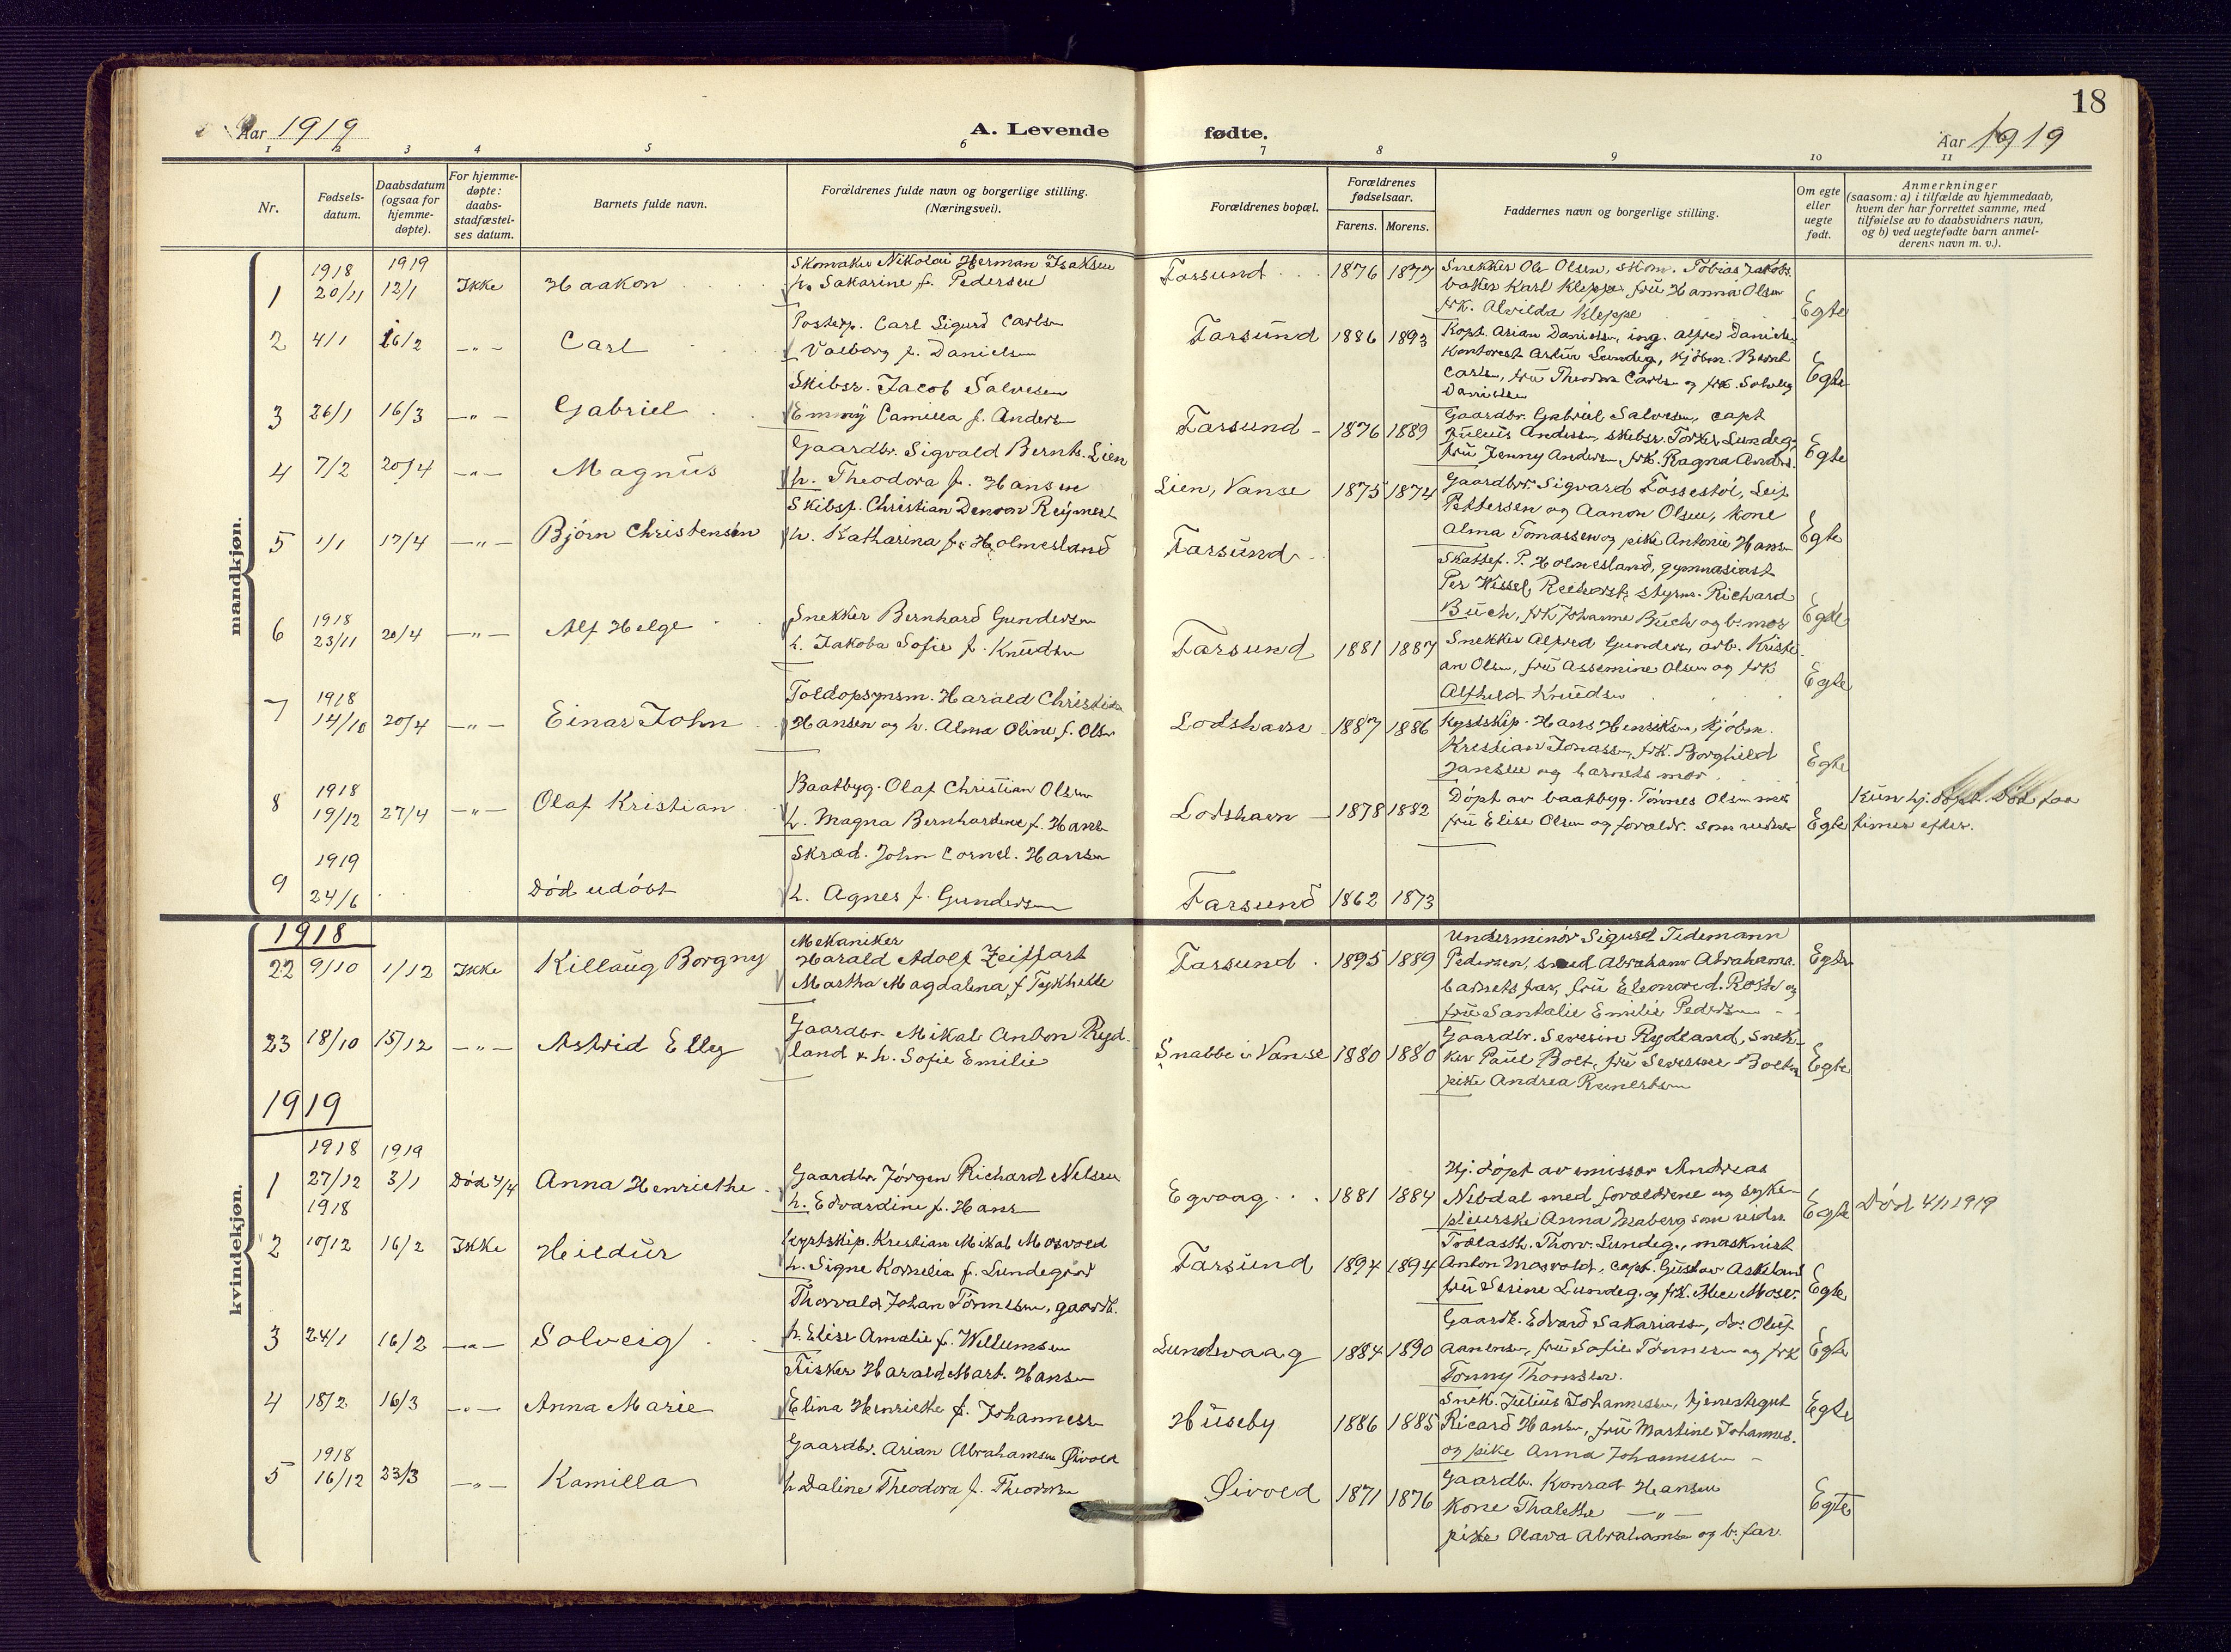 18
Aar 1919
A. Levende
fødte.
Aar 1919
1 2 3 4 5 6 7 8 9 10 11
Nr.
Fødsels-
datum.
Daabsdatum
(ogsaa for
hjemme-
døpte).
For hjemme-
døpte:
daabs-
stadfæstel-
ses datum.
Barnets fulde navn.
Forældrenes fulde navn og borgerlige stilling.
(Næringsvei).
Forældrenes bopæl.
Forældrenes
fødselsaar.
Farens. Morens.
Faddernes navn og borgerlige stilling.
Om egte
eller
uegte
født.
Anmerkninger
(saasom: a) i tilfælde av hjemmedaab,
hvem der har forrettet samme, med
tilføielse av to daabsvidners navn,
og b) ved uegtefødte barn anmel-
derens navn m. v.).
mandkjøn.
1 1918 20/11 1919 12/1 Ikke Haakon
Skomaker Nikolai Herman Isaksen
h. Sakarine f. Pedersen
Farsund 1876 1877
Snekker Ole Olsen, skom. Tobias Jakobs.
baker Karl Kleppe, frü Hanna Olsen
frk. Alvilda Kleppe
Egte
2 4/1 16/2 -"- Carl
Postexp. Carl Sigurd Carlsen
Valborg f. Danielsen
Farsund 1886 1893
Kapt. Arian Danielsen, ing. Alfred Daniels.
Kontorist Artur Lundeg., kjöbm. Bernt
Carls., frü Theodora Carlsen og frk. Solveig
Danielsen
Egte
3 26/1 16/3 -"- Gabriel
Skibsr. Jacob Salvesen
Emmy Camilla f. Andersen
Farsund 1876 1889
Gaardbr. Gabriel Salvesen, capt
Julius Andersen, skibsr. Torkel Lundeg.
frü Jenny Andersen, frk. Ragna Anders.
Egte
4 7/2 20/4 -"- Magnus
Gaardbr. Sigvald Bernts. Lien
h. Theodora f. Hansen
Lien, Vanse 1875 1874
Gaardbr. Sigvard Fossestöl, Leif
Pettersen og Aanon Olsen, kone
Alma Tomassen og pike Antonie Hansen
Egte
5 1/1 17/4 -"- Björn Christensen
Skibsf. Christian Reymert
h. Katharina f. Holmesland
Farsund
Skattef. P. Holmesland, gymnasiast
Per Wessel styrm. Richard
Büch, frk Johanne Büch og b. mor
Egte
6 1918 23/11 20/4 -"- Alf Helge
Snekker Bernhard Gundersen
h. Jakoba Sofie f. Knudsen
Farsund 1881 1887
Snekker Alfred Gunders., arb. Kristi-
an Olsen, frü Assemine Olsen og frk
Alfhild Knudsen
Egte
7 1918 14/10 20/4 -"- Einar John
Toldopsynsm. Harald Christian
Hansen og h. Alma Oline f. Olsen
Lodshavn 1887 1886
Kystskip. Hans Henriksen, kjöbm.
Kristian Jonassen, frk. Borghild
Jansen og barnets mor
Egte
8 1918 19/12 27/4 -"- Olaf Kristian
Baatbyg. Olaf Christian Olsen
h. Magna Bernhardine f. Hans.
Lodshavn 1878 1882
Döpt av baatbyg. Tönnes Olsen med
frü Elise Olsen og forældr. som vidner
Egte
Kun hj. döpt. Död faa
timer efter.
9 1919 24/6 Död udöbt
Skræd. John Cornel. Hansen
h. Agnes f. Gundersen
Farsund 1862 1873
kvindekjøn.
1918
22 9/10 1/12 Ikke Killaug Borgny
Mekaniker
Harald Adolf Zeiffart
Martha Magdalena f.
Farsund 1895 1889
Underminör Sigurd Tidemann
Pedersen, smed Abraham Abrahams.
barnets far, frü og
frü Santalie Emilie Pedersen
Egte
23 18/10 15/12 -"- Astrid Elly
Gaardbr. Mikal Anton Ryd-
land & h. Sofie Emilie
Snabbe i Vanse 1880 1880
Gaardbr. Severin Rydland, snek-
ker Paul Bolt, frü
pike Andrea
Egte
1919
1 1918 27/12 1919 3/1 Död 4/4 Anna Henriethe
Gaardbr. Jörgen Richard Nilsen
h. Edvardine f. Hans.
Egvaag 1881 1884
Hj. döpt av emissær Andreas
Nibdal med forældrene og syke-
pleierske Anna som vidn.
Egte
Död 4/1 1919
2 1918 10/12 16/2 Ikke Heildur
Kystskip. Kristian Mikal Mosvold
h. Signe Kornelia f. Lundegård
Farsund 1894 1894
Trælasth. Thorv. Lundeg., maskinist
Anton Mosvold, capt. Gustav Askeland
frü Serine Lundeg. og frk. Alice Mosv.
Egte
3 24/1 16/2 -"- Solveig
Thorvald Johan Tönnesen, gaardb.
h. Elise Amalie f. Willumsen
Lundevaag 1884 1890
Gaardb. Edvard Sakariass., do. Oluf
Aanensen, frü Sofie Tönnesen og frk
Tonny Thomsen.
Egte
4 18/2 16/3 -"- Anna Marie
Fisker Harald Mart. Hansen
Elina Henriethe f. Johannesen
Hüseby 1886 1885
Snek. Julius Johannessen, tjenestegut
Ricard Hansen, frü Martine Johannes.
og pike Anna Johannessen
Egte
5 1918 16/12 23/3 -"- Kamilla
Gaardb. Arian Abrahamsen Öivold
h. Daline Theodora f. Theodorsen
Öivold 1871 1876
Gaardb. Konrad Hansen
Kone Thalethe -"-
pike Olava Abrahamsen og b. far
Egte